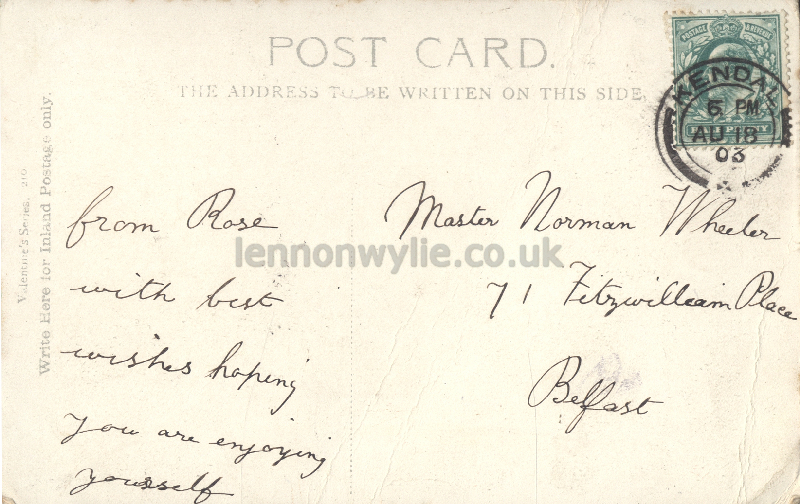 POST CARD.
THE ADDRESS TO BE WRITTEN ON THIS SIDE
POSTAGE & REVENUE
KENDAL
6 PM
AU 18
03
Valentine's Series.
Write Here for Inland Postage only.
from Rose
with best
wishes hoping
you are enjoying
yourself
Master Norman Wheeler
71 Fitzwilliam Place
Belfast
lennonwylie.co.uk